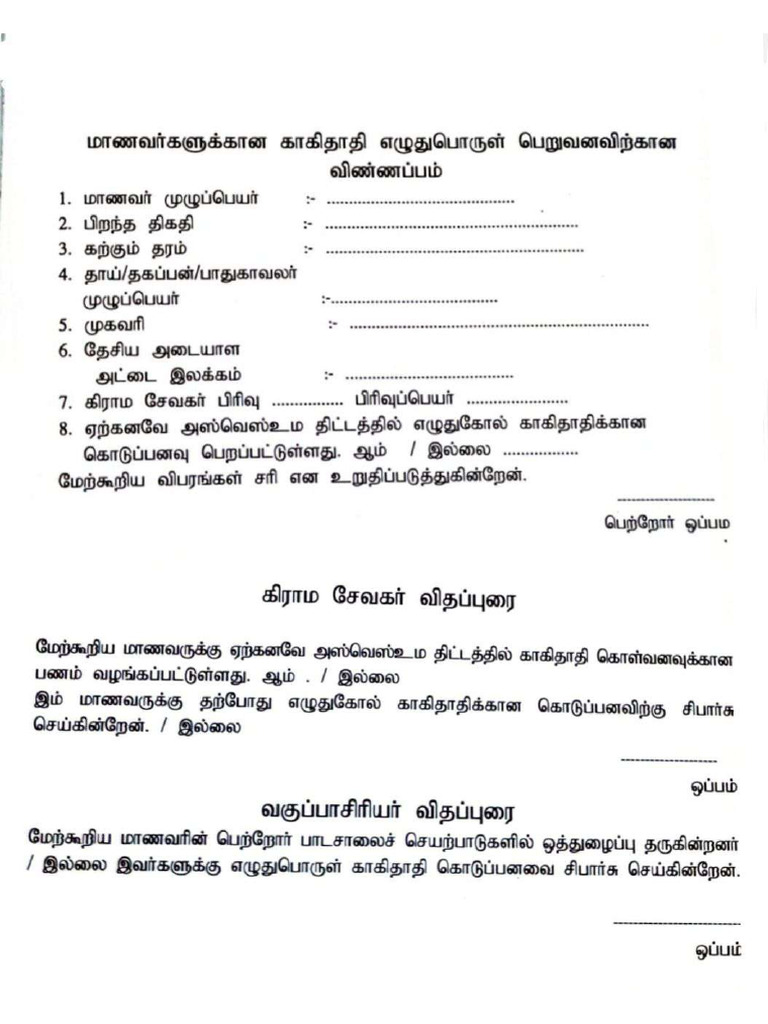 மாணவர்களுக்கான காகிதாதி எழுதுபொருள் பெறுவனவிற்கான
விண்ணப்பம்
1. மாணவர் முழுப்பெயர் :- ........................................
2. பிறந்த திகதி :- ......................................................
3. கற்கும் தரம் :- .......................................................
4. தாய்/தகப்பன்/பாதுகாவலர்
முழுப்பெயர் :-....................................
5. முகவரி :- ................................................................
6. தேசிய அடையாள
அட்டை இலக்கம் :- ....................................
7. கிராம சேவகர் பிரிவு ................ பிரிவுப்பெயர் ......................
8. ஏற்கனவே அஸ்வெஸ்உம திட்டத்தில் எழுதுகோல் காகிதாதிக்கான
கொடுப்பனவு பெறப்பட்டுள்ளது. ஆம் / இல்லை .................
மேற்கூறிய விபரங்கள் சரி என உறுதிப்படுத்துகின்றேன்.
---------------------
பெற்றோர் ஒப்பம
கிராம சேவகர் விதப்புரை
மேற்கூறிய மாணவருக்கு ஏற்கனவே அஸ்வெஸ்உம திட்டத்தில் காகிதாதி கொள்வனவுக்கான
பணம் வழங்கப்பட்டுள்ளது. ஆம் . / இல்லை
இம் மாணவருக்கு தற்போது எழுதுகோல் காகிதாதிக்கான கொடுப்பனவிற்கு சிபார்சு
செய்கின்றேன். / இல்லை
---------------------
ஒப்பம்
வகுப்பாசிரியர் விதப்புரை
மேற்கூறிய மாணவரின் பெற்றோர் பாடசாலைச் செயற்பாடுகளில் ஒத்துழைப்பு தருகின்றனர்
/ இல்லை இவர்களுக்கு எழுதுபொருள் காகிதாதி கொடுப்பனவை சிபார்சு செய்கின்றேன்.
---------------------------
ஒப்பம்